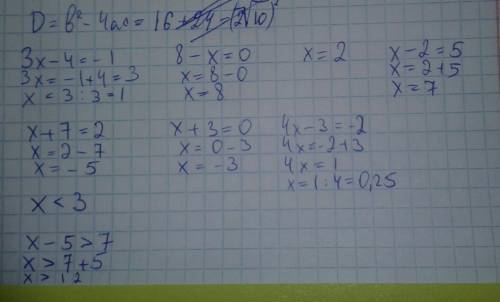 D = b² - 4ac = 16 + 24 = (2√10)²
3x - 4 = -1
3x = -1 + 4 = 3
x = 3 : 3 = 1
8 - x = 0
x = 8 - 0
x = 8
x = 2
x - 2 = 5
x = 2 + 5
x = 7
x + 7 = 2
x = 2 - 7
x = - 5
x + 3 = 0
x = 0 - 3
x = -3
4x - 3 = -2
4x = -2 + 3
4x = 1
x = 1 : 4 = 0,25
x < 3
x - 5 > 7
x > 7 + 5
x > 12